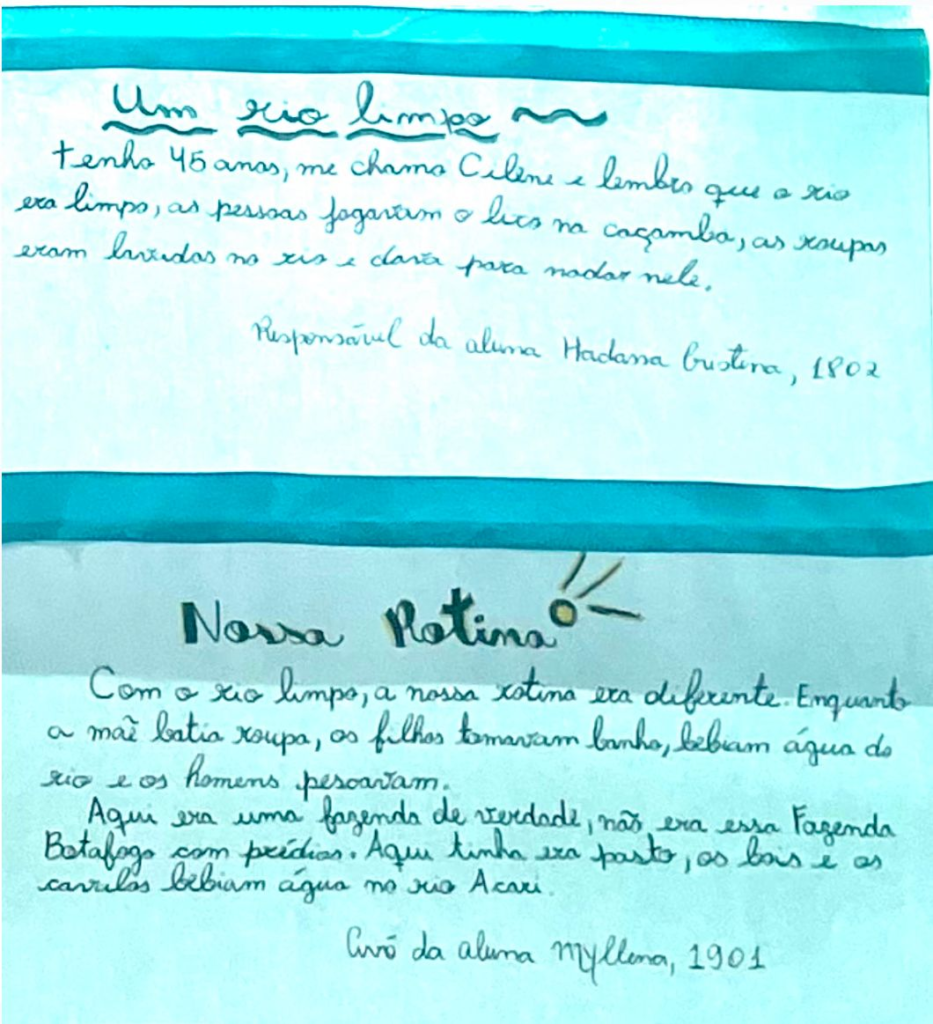 Um rio limpo
Tenho 45 anos, me chamo Cilene e lembro que o rio
era limpo, as pessoas jogavam o lixo na caçamba, as roupas
eram lavadas no rio e dava para nadar nele.
Responsável da aluna Hadassa Cristina, 1802
Nossa Rotina
Com o rio limpo, a nossa rotina era diferente. Enquanto
a mãe batia roupa, os filhos tomavam banho, bebiam água do
rio e os homens pescavam.
Aqui era uma fazenda de verdade, não era essa Fazenda
Botafogo com prédios. Aqui tinha era pasto, os bois e os
cavalos bebiam água no rio Acari.
Avó da aluna Myllena, 1901